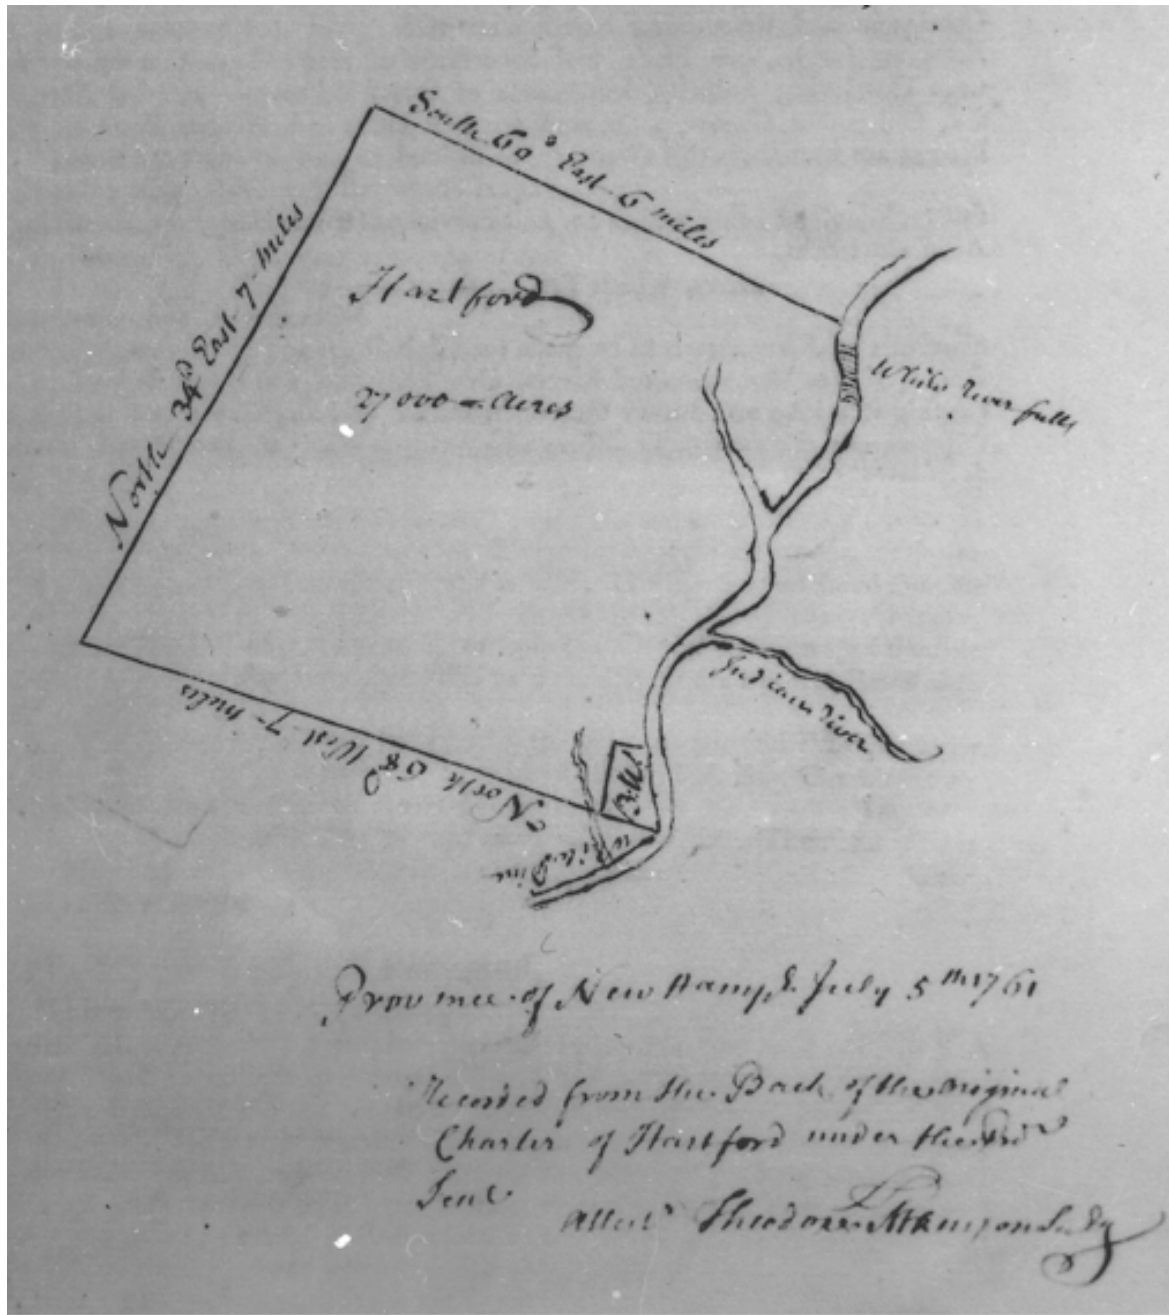 South 60° East 6 miles
North 34° East 7 miles
Hartford
27000 Acres
White River falls
Indian River
North 68° West 7 miles
B:W
White Pine
Province of New Hampr. July 5th 1761
Recorded from the Back of the Original
Charter of Hartford under the Prov
Seal
Attestr Theodore Atkinson Secry